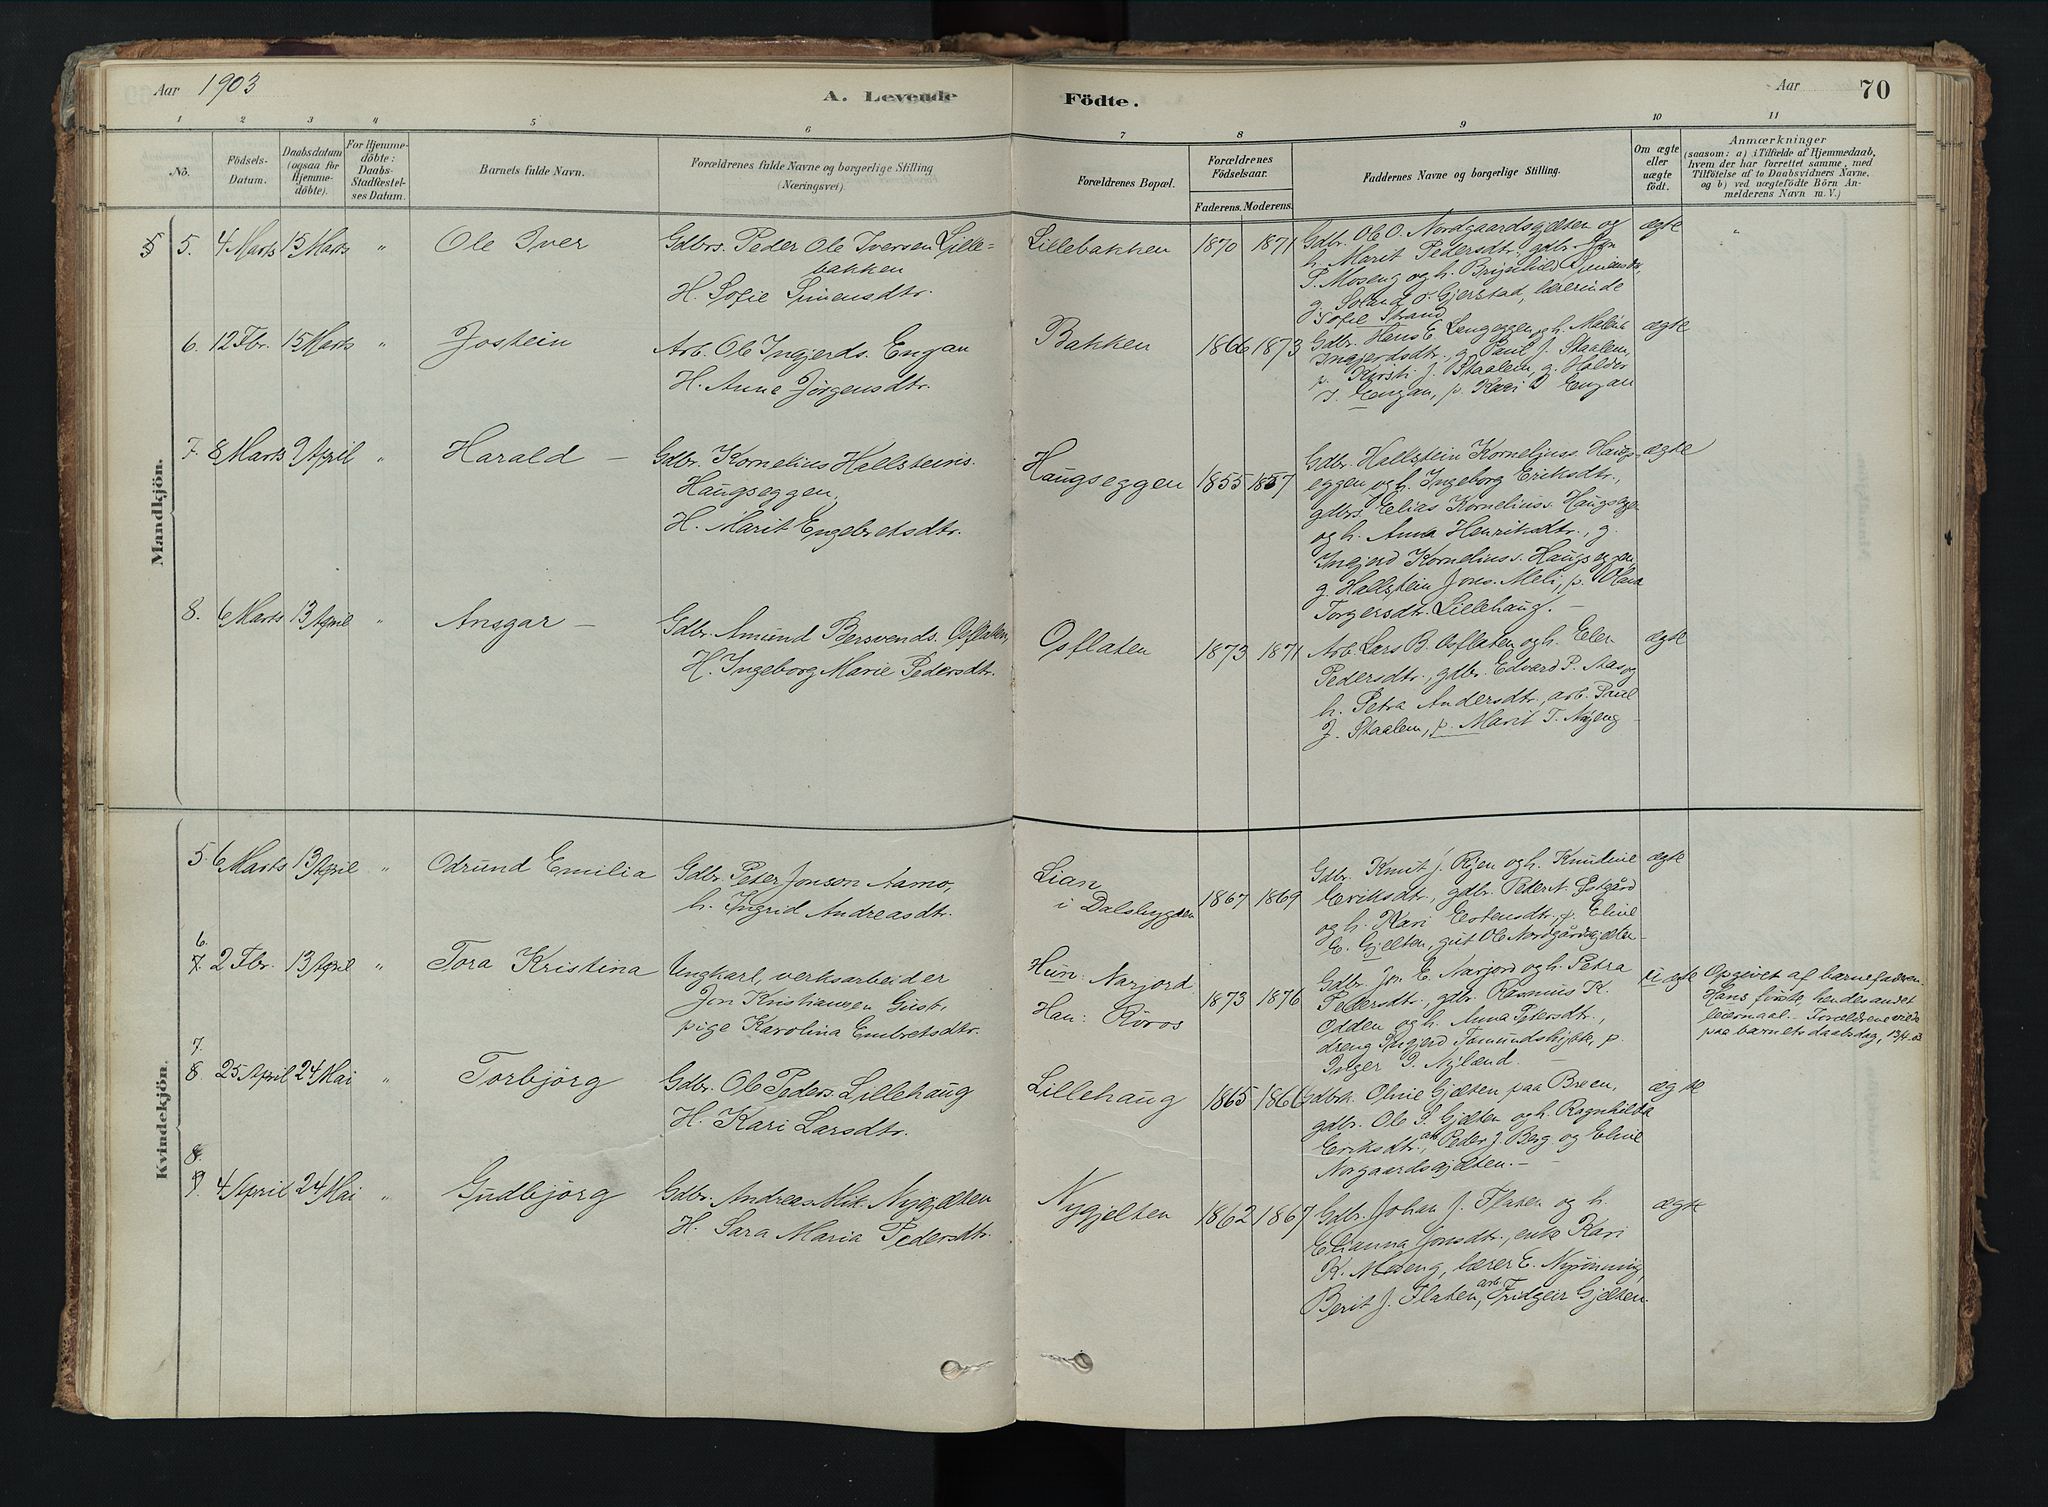 Aar 1903
A. Levende Födte.
Aar
70
1 2 3 4 5 6 7 8 9 10 11
No.
Födsels-Datum.
Daabsdatum (ogsaa for Hjemmedöbte).
For Hjemmedöbte: Daabs-Stadfæstelses Datum.
Barnets fulde Navn.
Forældrenes fulde Navne og borgerlige Stilling (Næringsvei).
Forældrenes Bopæl.
Forældrenes Födselsaar.
Faderens. Moderens.
Faddernes Navne og borgerlige Stilling.
Om ægte eller uægte födt.
Anmærkninger
(saasom: a) i Tilfælde af Hjemmedaab,
hvem der har forrettet samme, med
Tilföielse af to Daabsvidners Navne,
og b) ved uægtefödte Börn An-
melderens Navn m. V.)
Mandkjön.
5. 4 Marts 15 Marts " Ole Iver
Gdbrs. Peder Ole Iversen Lille-
bakken
H. Sofie Simensdtr.
Lillebakken 1870 1871
Gdbr. Ole O. Nordgaardsgjelten og
h. Marit Pedersdtr., gdbr. Jon
P. Moseng og h. Brynhild Simensdtr,
g. O. Gjerstad, lærerinde
Sofie Strand
ægte "
6. 12 Fbr. 15 Marts " Jostein
Arb. Ole Ingjerds. Engan
H. Anne Jörgensdtr.
Bakken 1866 1873
Gdbr. Hans E. Langeggen og h.
Ingjerdsdtr., g. Paul J. Staalem,
p. Kirsti J. Staalem, g. Haldor
I. Engan, p. Kari I. Engan
ægte
7. 8 Marts 9 April " Harald –
Gdbr. Kornelius Hallsteins.
Haugseggen,
H. Marit Engebretsdtr.
Haugseggen 1855 1857
Gdbr. Hallstein Korneliuss. Haugs-
eggen og h. Ingeborg Eriksdtr.,
gdbrs. Elias Korneliuss. Haugseggen
og h. Anna Henriksdtr., g.
Ingjerd Korneliuss. Haugseggen,
g. Hallstein Jons. Meli, p.
Torgersdtr. Lillehaug. –
ægte
8. 6 Marts 13 April " Ansgar –
Gdbr. Amund Bersvends. Osflaten,
H. Ingeborg Marie Pedersdtr.
Osflaten 1873 1871
Arb. Lars B. Osflaten og h. Elen
Pedersdtr., gdbr. Edvard P. Aas og
h. Petra Andersdtr., arb. Paul
J. Staalem, p. Marit T. Nyeng –
ægte
Kvindekjön.
5. 6 Marts 13 April " Odrund Emilia
Gdbr. Peter Jonson Aamo,
h. Ingrid Andreasdtr.
Lian
i Dalsbygden 1867 1869
Gdbr. Knut J. Ryen og h. Knudine
Eriksdtr., gdbr. Peder N. Østgård
og h. Kari Estensdtr., p. Eline
E. Gjelten, gut Ole Nordgårdsgjelten
ægte
6.
7. 2 Fbr. 13 April " Tora Kristina
Ungkarl, verksarbeider
Jon Kristiansen Gust,
pige Karolina Embretsdtr.
Hun: Narjord
Han: Röros 1873 1876
Gdbr. Jon E. Narjord og h. Petra
Pedersdtr., gdbr. Rasmus K.
Odden og h. Anna Petersdtr.,
dreng Ingjerd Tamundshytte, p.
Inger P. Nyland. –
uægte
Opgivet af barnefaderen.
Hans förste, hendes andet
leiermaal. – Forældrene viede
paa barnets daabsdag, 13/4. 03
7.
8. 25 April 24 Mai " Torbjörg
Gdbr. Ole Peders. Lillehaug
H. Kari Larsdtr.
Lillehaug 1865 1866
Gdbrk. Oline Gjelten paa Breen,
gdbr. Ole S. Gjelten og h. Ragnhilda
Eriksdtr., arb. Peder J. Berg og Eline
Norgaardsgjelten. –
ægte
8.
9. 4 April 24 Mai " Gudbjörg
Gdbr. Andreas Mik. Nygjelten
H. Sara Maria Pedersdtr.
Nygjelten 1862 1867
Gdbr. Johan J. Flaten og h.
Elianna Jonsdtr., enke Kari
K. Moseng, lærer E. Nyrönning,
Berit J. Flaten, arb. Fridgeir Gjelten.
ægte